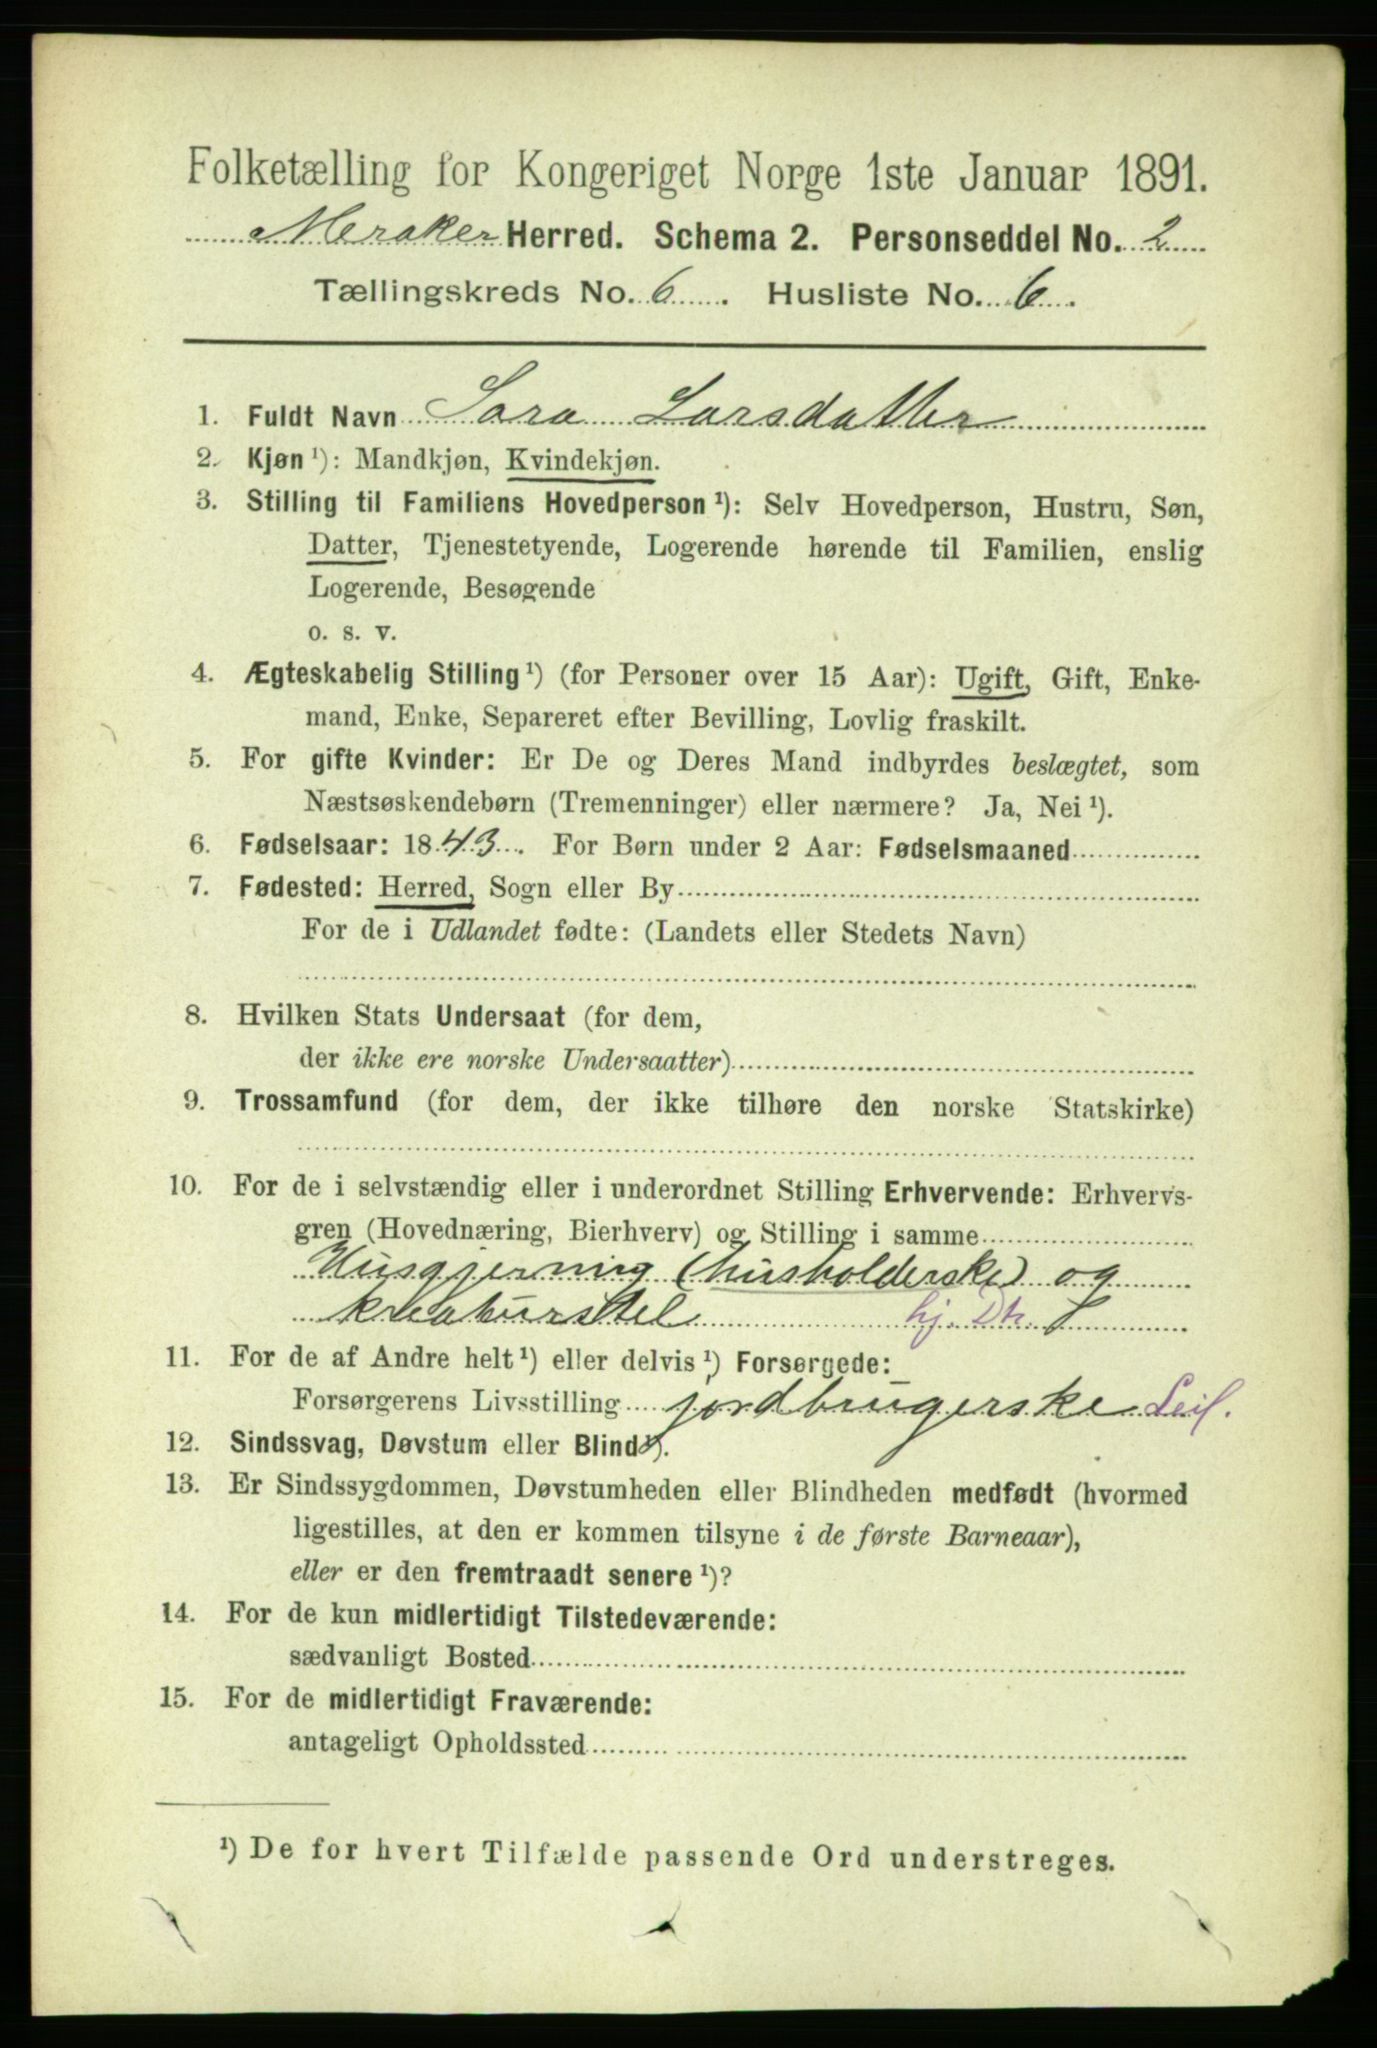 Folketælling for Kongeriget Norge 1ste Januar 1891.
Meraker Herred. Schema 2. Personseddel No. 2
Tællingskreds No. 6. Husliste No. 6.
1. Fuldt Navn Sara Larsdatter
2. Kjøn ¹): Mandkjøn, Kvindekjøn.
3. Stilling til Familiens Hovedperson ¹): Selv Hovedperson, Hustru, Søn,
Datter, Tjenestetyende, Logerende hørende til Familien, enslig
Logerende, Besøgende
o. s. v.
4. Ægteskabelig Stilling ¹) (for Personer over 15 Aar): Ugift, Gift, Enke-
mand, Enke, Separeret efter Bevilling, Lovlig fraskilt.
5. For gifte Kvinder: Er De og Deres Mand indbyrdes beslægtet, som
Næstsøskendebørn (Tremenninger) eller nærmere? Ja, Nei ¹).
6. Fødselsaar: 1843. For Børn under 2 Aar: Fødselsmaaned
7. Fødested: Herred, Sogn eller By
For de i Udlandet fødte: (Landets eller Stedets Navn)
8. Hvilken Stats Undersaat (for dem,
der ikke ere norske Undersaatter)
9. Trossamfund (for dem, der ikke tilhøre den norske Statskirke)
10. For de i selvstændig eller i underordnet Stilling Erhvervende: Erhvervs-
gren (Hovednæring, Bierhverv) og Stilling i samme
Husgjerning (husholderske) og
kreaturstel hj. Dtr.
11. For de af Andre helt ¹) eller delvis ¹) Forsørgede:
Forsørgerens Livsstilling jordbrugerske Leil.
12. Sindssvag, Døvstum eller Blind ¹).
13. Er Sindssygdommen, Døvstumheden eller Blindheden medfødt (hvormed
ligestilles, at den er kommen tilsyne i de første Barneaar),
eller er den fremtraadt senere ¹)?
14. For de kun midlertidigt Tilstedeværende:
sædvanligt Bosted
15. For de midlertidigt Fraværende:
antageligt Opholdssted
¹) De for hvert Tilfælde passende Ord understreges.